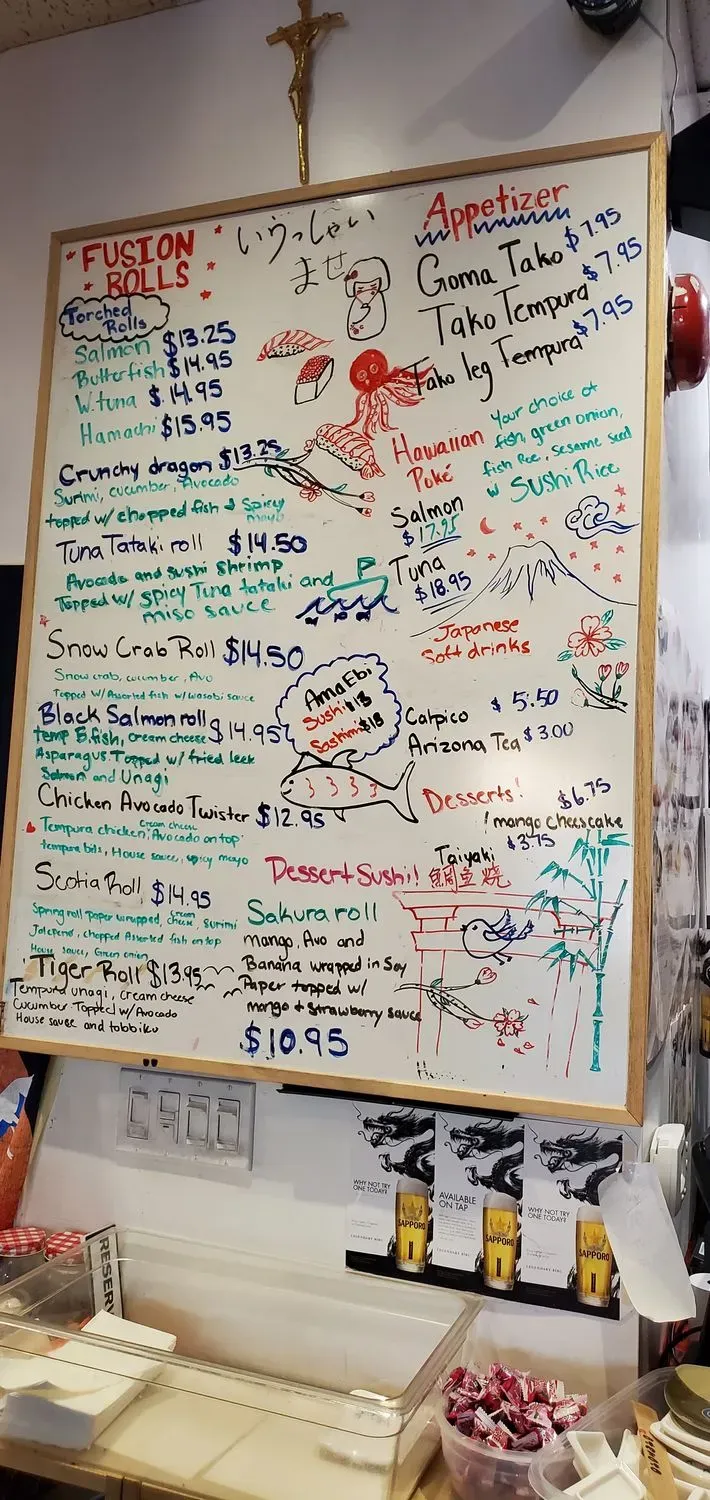 FUSION
ROLLS
Torched
Rolls
Salmon $13.25
Butterfish $14.95
W.tuna $14.95
Hamachi $15.95
Crunchy dragon $13.25
Surimi, cucumber, Avocado
topped w/ chopped fish & Spicy
mayo
Tuna Tataki roll $14.50
Avocado and sushi shrimp
Topped w/ spicy Tuna tataki and
miso sauce
Snow Crab Roll $14.50
Snow crab, cucumber, Avo
Topped w/Assorted fish w/wasabi sauce
Black Salmon roll $14.95
temp B.fish, cream cheese
Asparagus. Topped w/ fried leek
Salmon and Unagi
Chicken Avocado Twister $12.95
Tempura chicken, cream cheese, Avocado on top
tempura bits, House sauce, spicy mayo
Scotia Roll $14.95
Spring roll paper wrapped, cream cheese, surimi
Jalepeno, chopped Assorted fish on top
House sauce, Green onion
Tiger Roll $13.95
Tempura unagi, cream cheese
Cucumber Topped w/ Avocado
House sauce and tobbiko
いらっしゃい
ませ
Appetizer
Goma Tako $7.95
Tako Tempura $7.95
Tako leg Tempura $7.95
Hawaiian
Poké
Your choice of
fish, green onion,
fish Roe, sesame seed
w Sushi Rice
Salmon
$17.95
Tuna
$18.95
Japanese
Soft drinks
Calpico $5.50
Arizona Tea $3.00
Ama Ebi
Sushi $13
Sashimi $18
Desserts!
$6.75
mango cheescake
$3.75
Taiyaki
鯛魚焼
Dessert Sushi!
Sakura roll
mango, Avo and
Banana wrapped in Soy
Paper topped w/
mango & strawberry sauce
$10.95
WHY NOT TRY
ONE TODAY?
SAPPORO
LEGENDARY BIRU
AVAILABLE
ON TAP
SAPPORO
LEGENDARY BIRU
WHY NOT TRY
ONE TODAY?
SAPPORO
LEGENDARY BIRU
RESERV